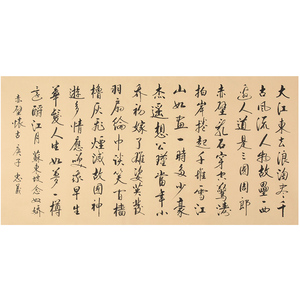 大江東去浪淘盡千
古風流人物故壘西
邊人道是三國周郎
赤壁亂石穿空驚濤
拍岸捲起千堆雪江
山如畫一時多少豪
傑遙想公瑾當年小
喬初嫁了雄姿英發
羽扇綸巾談笑間檣
櫓灰飛煙滅故國神
遊多情應笑我早生
華髮人生如夢一樽
還酹江月 蘇東坡念奴嬌
赤壁懷古 庚子 忠義